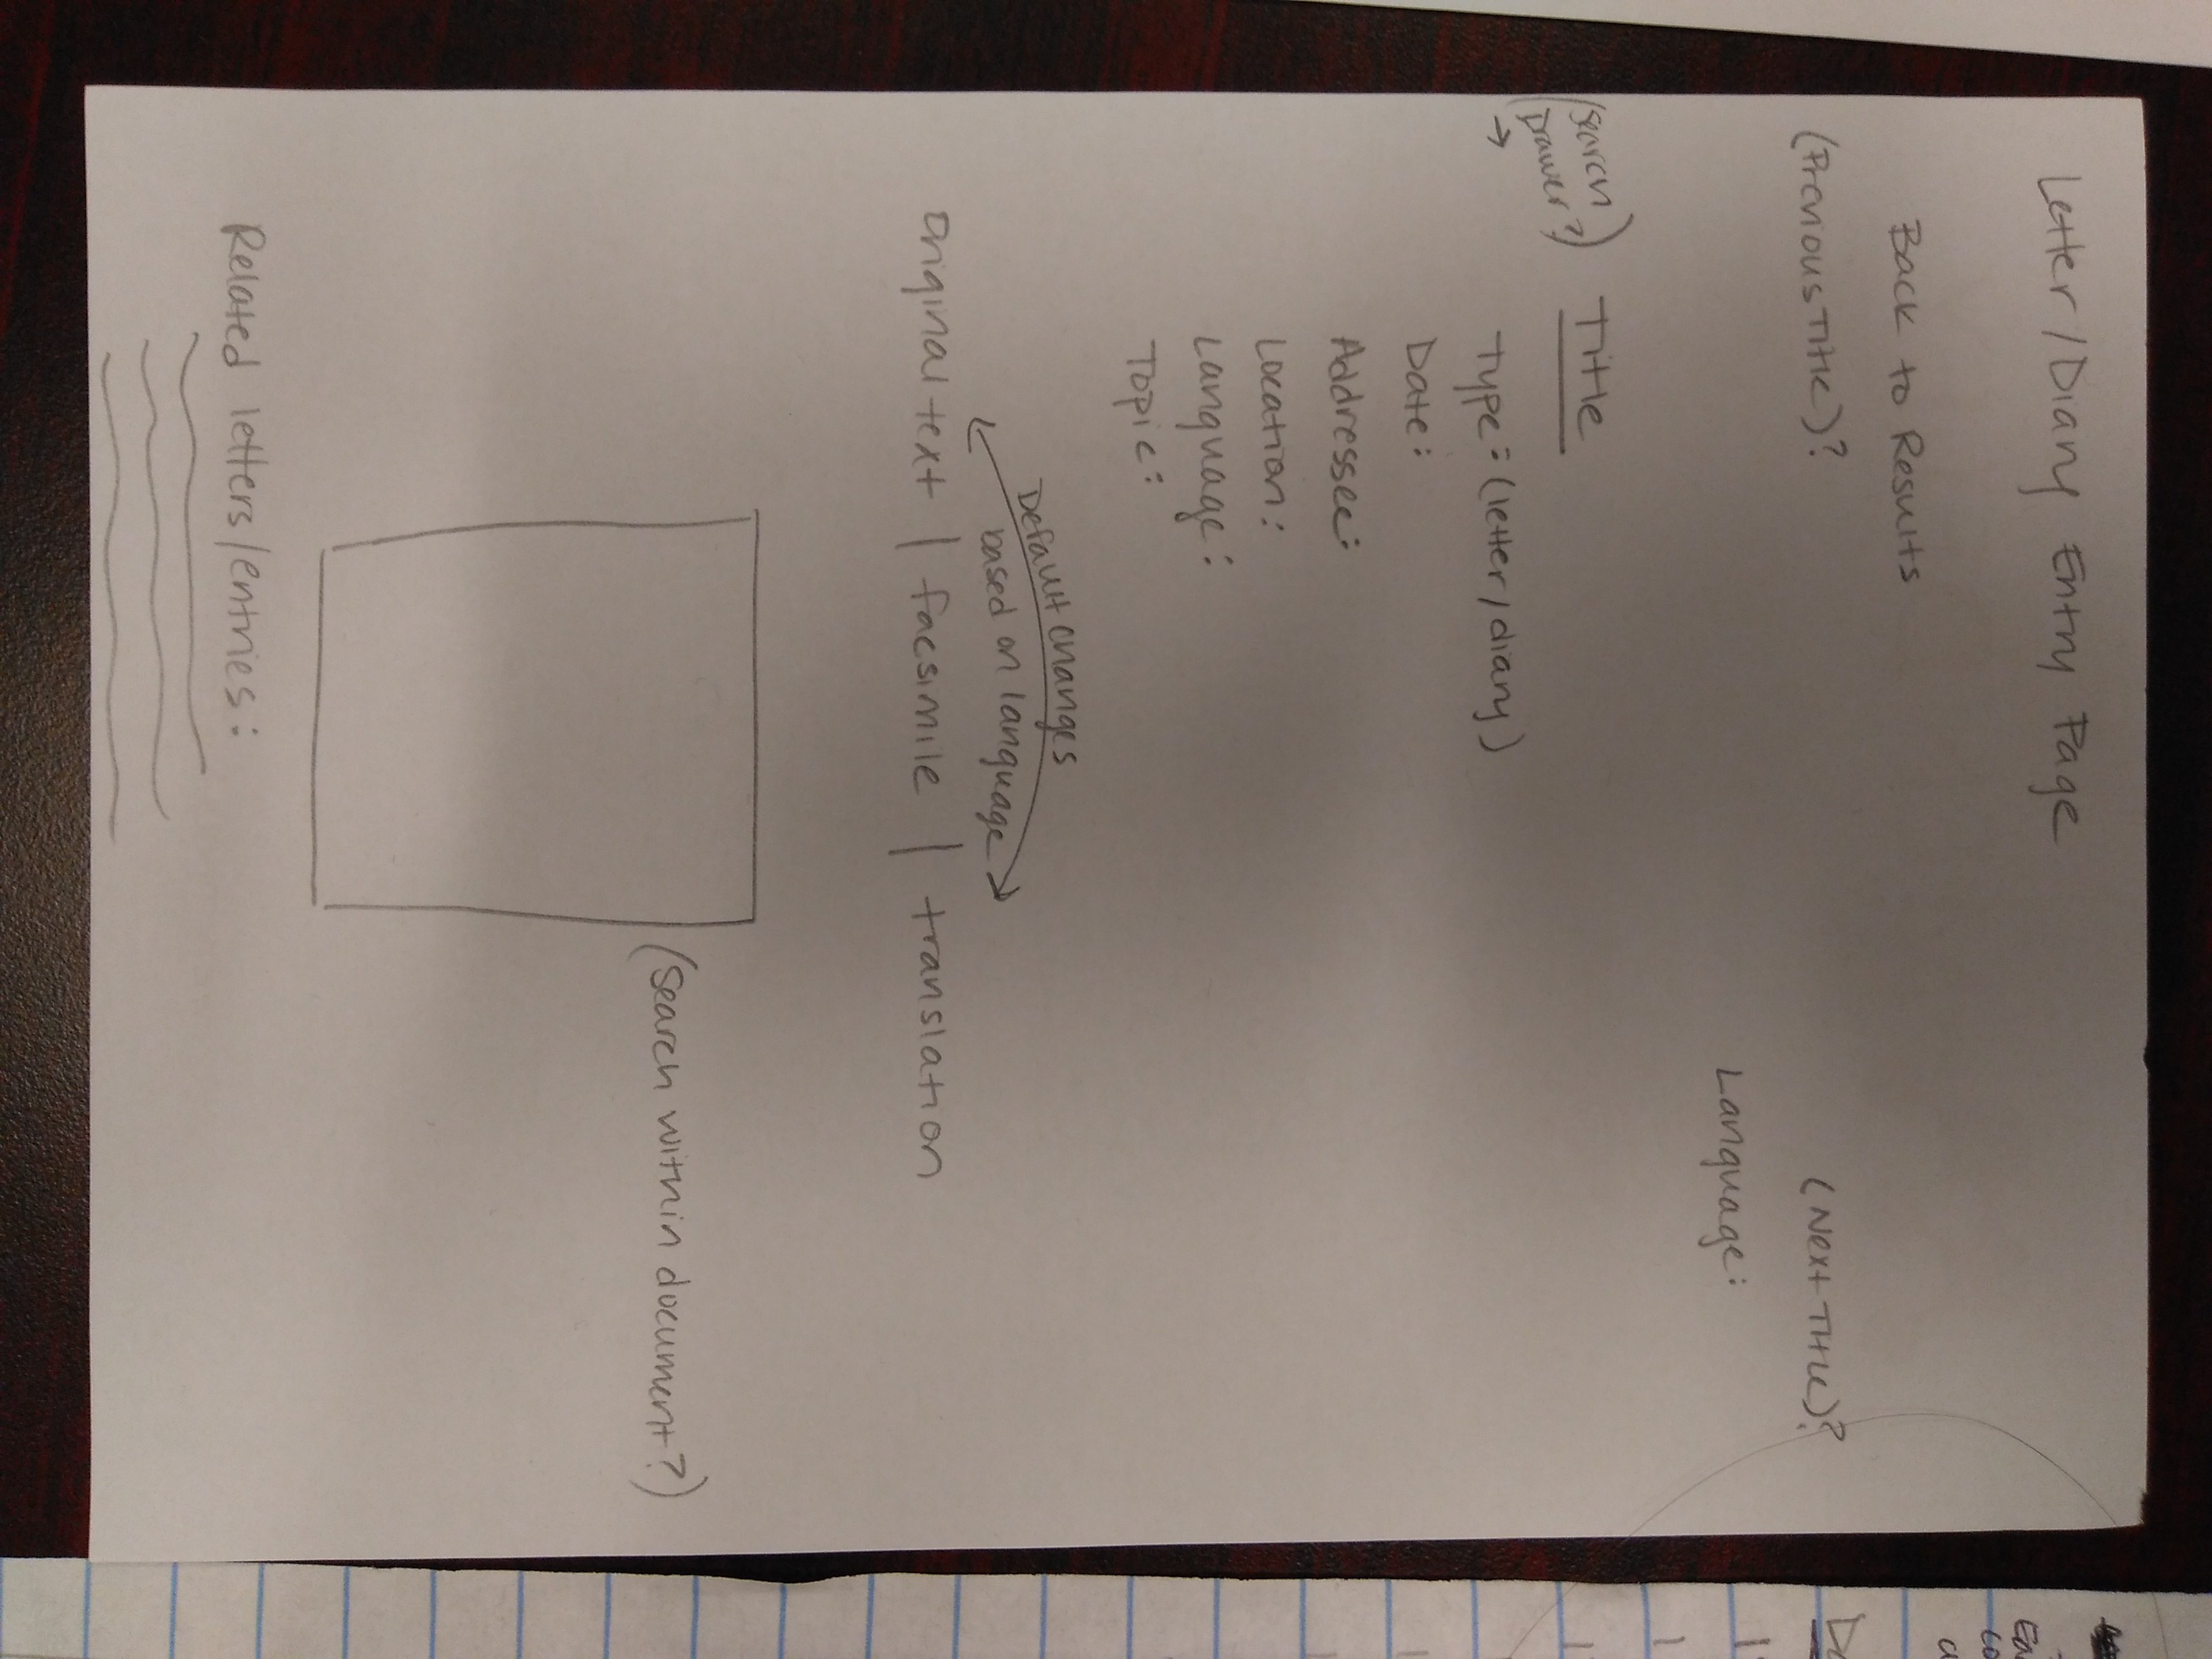 Letter/Diary Entry Page
Back to Results
(Previous Title)?
(Next Title)?
Language:
(search
drawer?)
Title
Type: (letter/diary)
Date:
Addressee:
Location:
Language:
Topic:
Default changes
based on language
original text | facsimile | translation
(search within document?)
Related letters/entries: